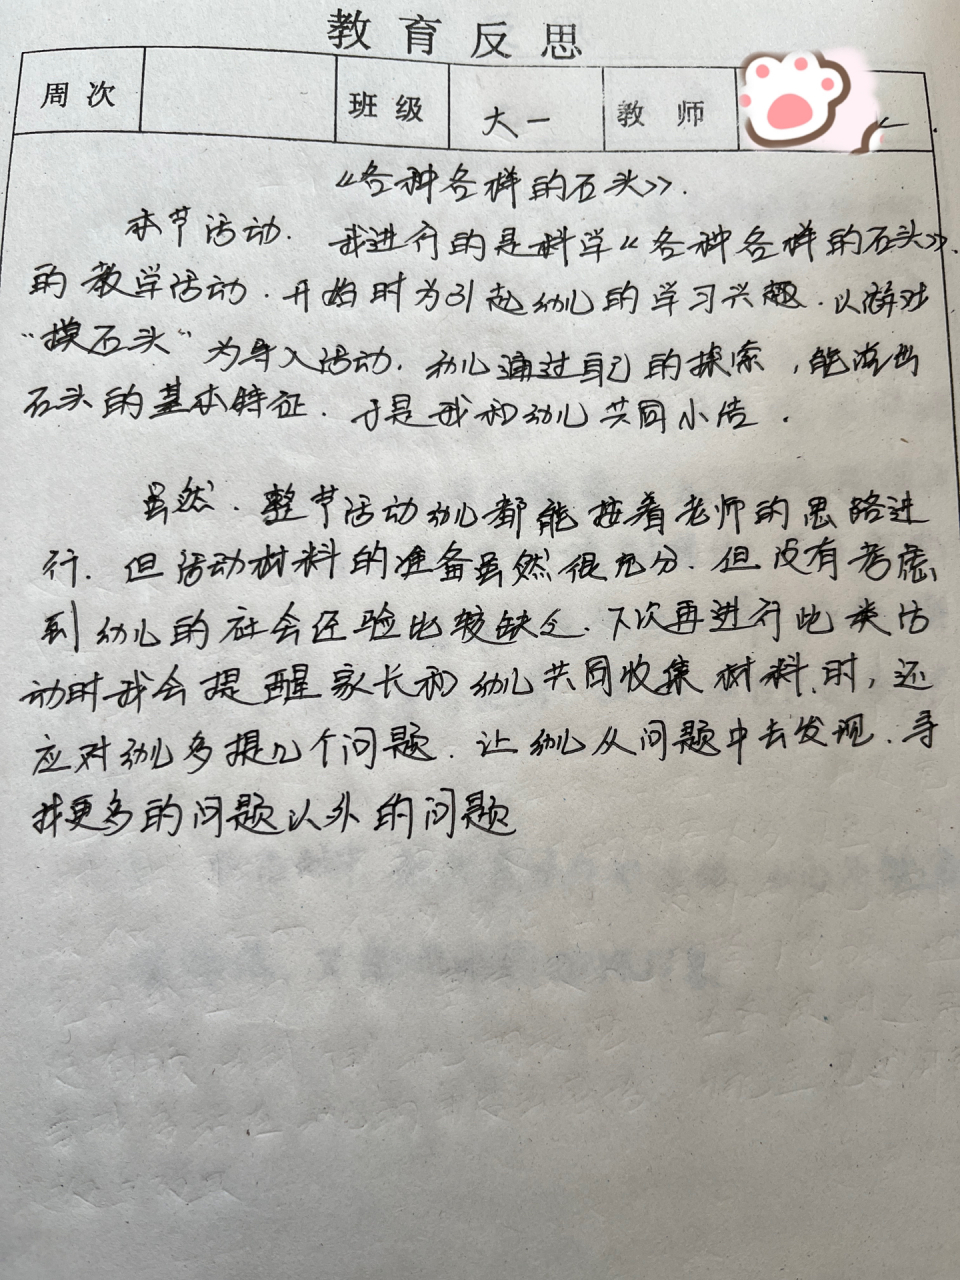 教育反思
周次 班级 大一 教师
《各种各样的石头》.
本节活动.我进行的是科学《各种各样的石头》.
的教学活动.开始时为引起幼儿的学习兴趣.以游戏
“摸石头”为导入活动.幼儿通过自己的探索,能说出
石头的基本特征.于是我和幼儿共同小结.
虽然.整节活动幼儿都能按着老师的思路进
行.但活动材料的准备虽然很充分.但没有考虑
到幼儿的社会经验比较缺乏.下次再进行此类活
动时我会提醒家长和幼儿共同收集材料.时,还
应对幼儿多提几个问题.让幼儿从问题中去发现.寻
找更多的问题以外的问题